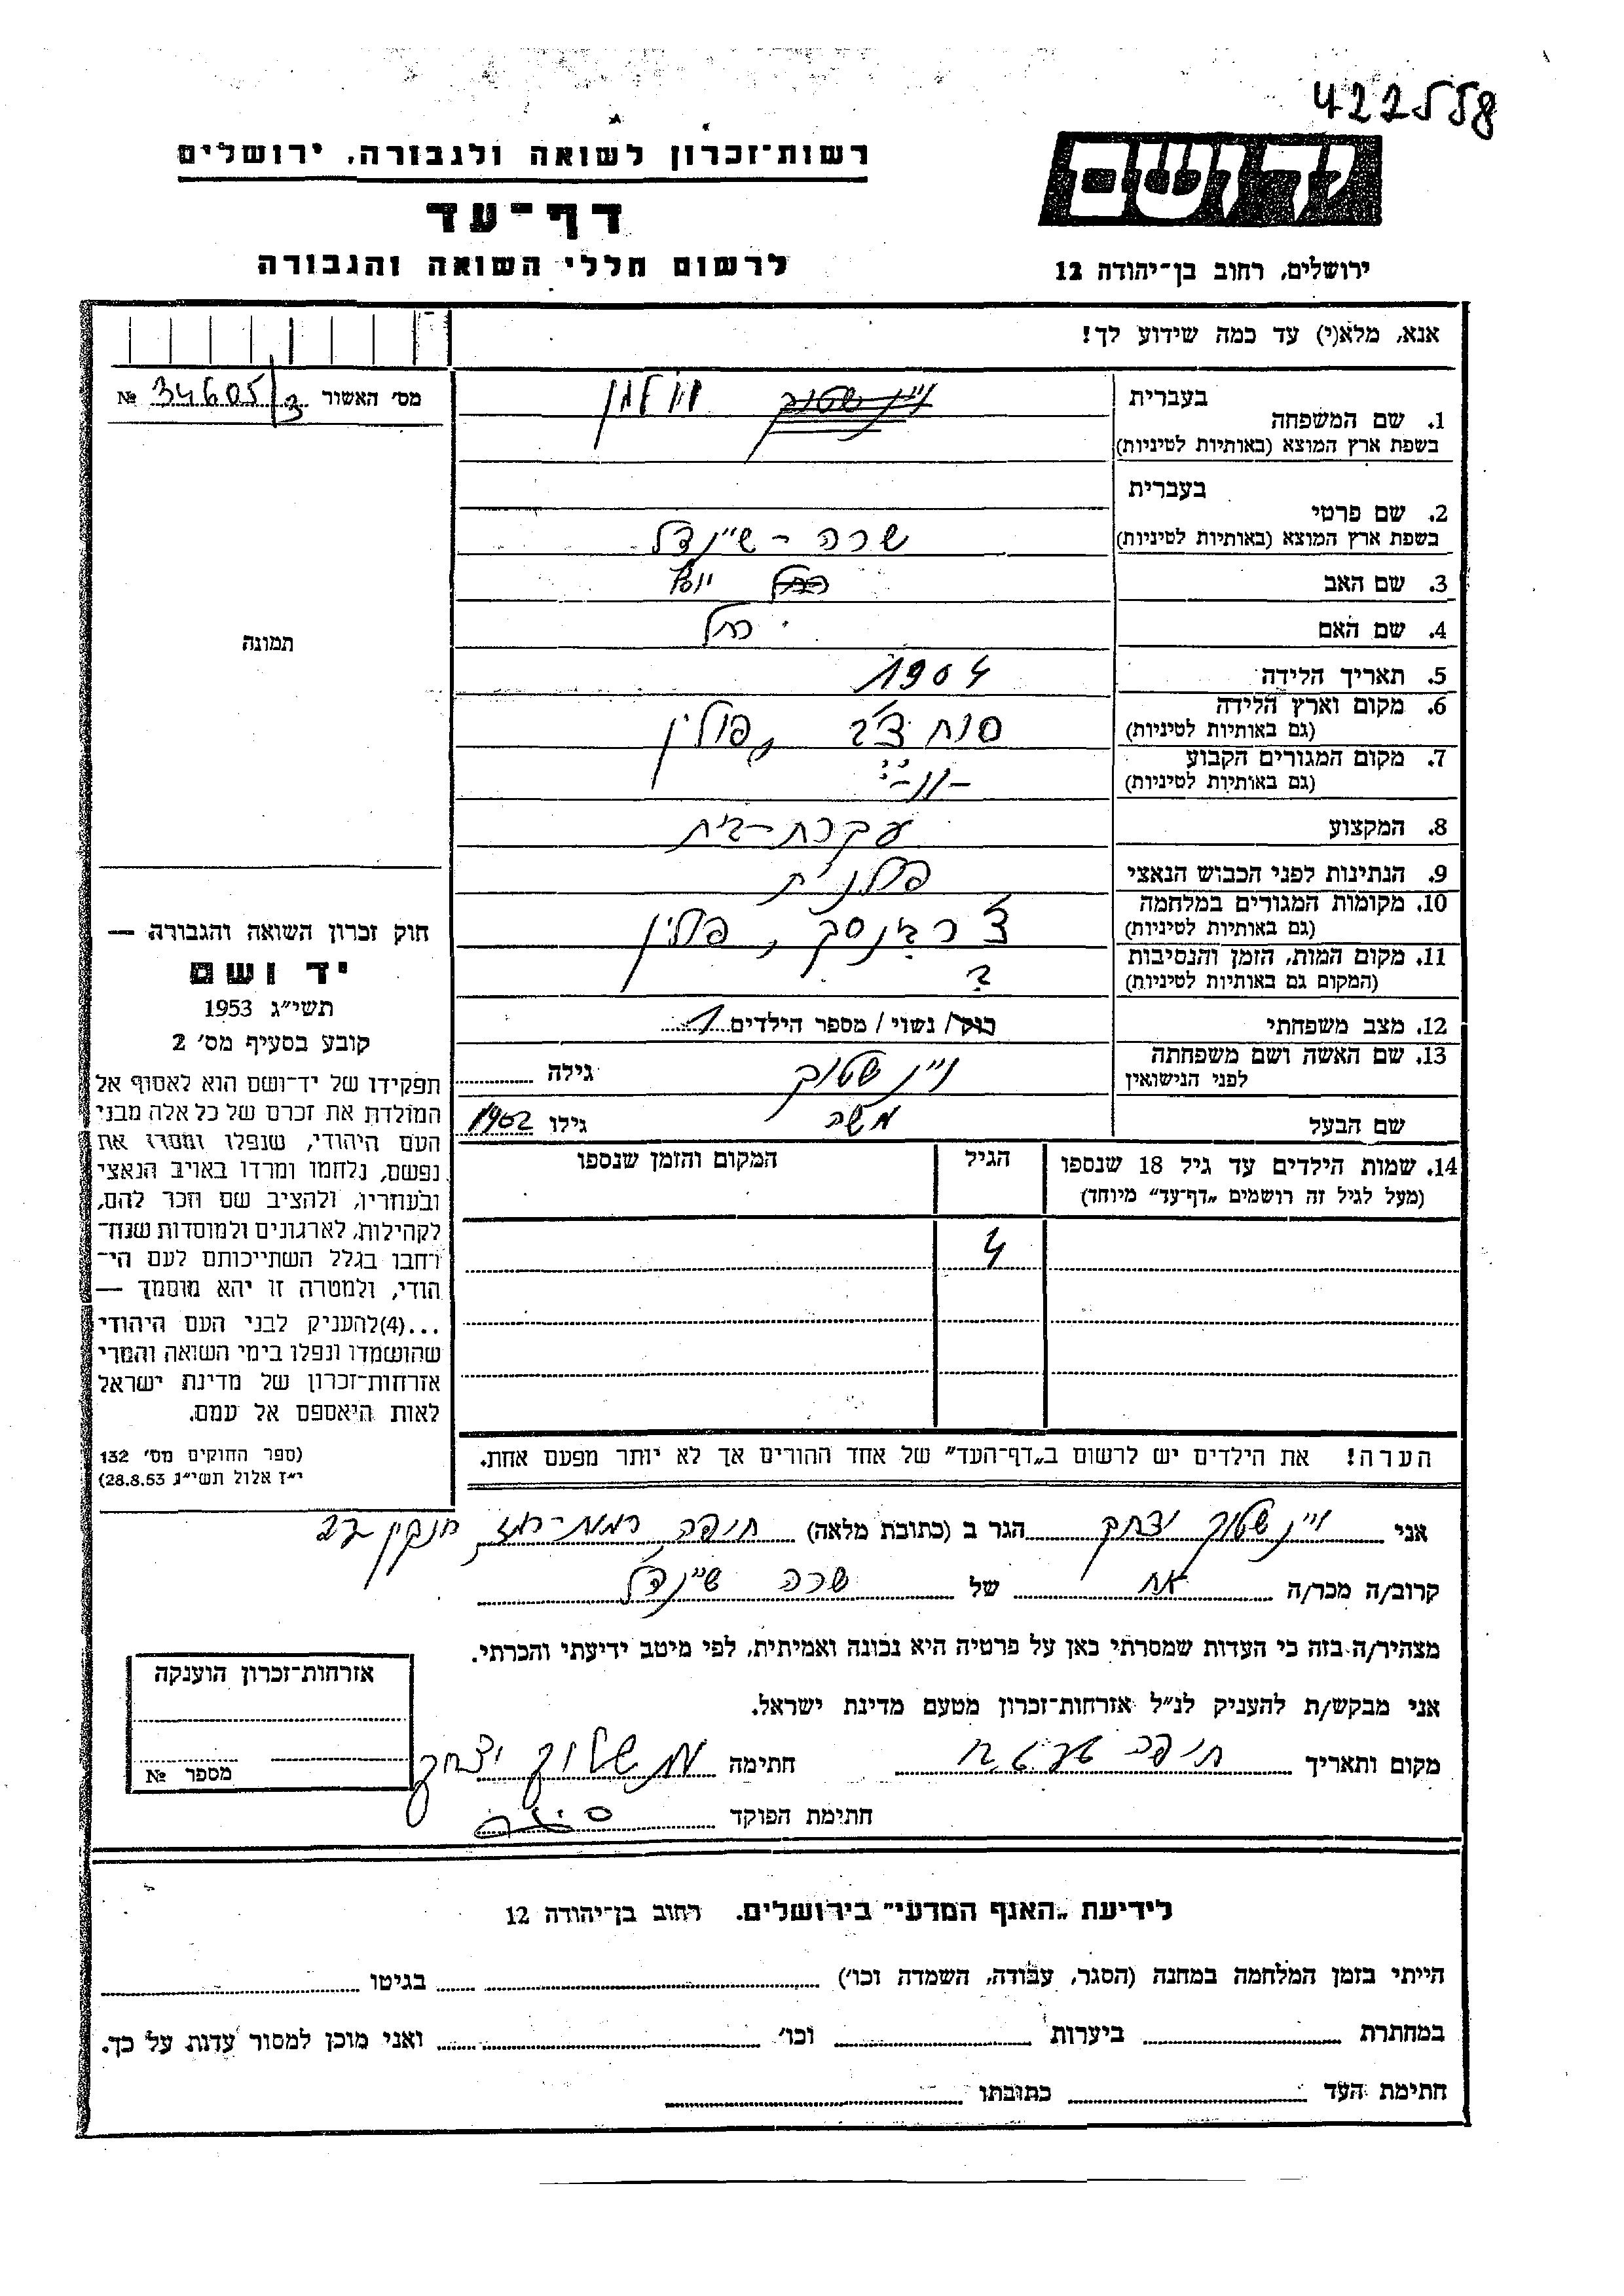 422558
רשות־זכרון לשואה ולגבורה, ירושלים
דף־עד
לרשום חללי השואה והגבורה
ידושם
ירושלים, רחוב בן־יהודה 12
אנא, מלא(י) עד כמה שידוע לך!
מס' האשור 34605/3 №
תמונה
חוק זכרון השואה והגבורה —
יד ושם
תשי"ג 1953
קובע בסעיף מס' 2
תפקידו של יד־ושם הוא לאסוף אל
המולדת את זכרם של כל אלה מבני
העם היהודי, שנפלו ומסרו את
נפשם, נלחמו ומרדו באויב הנאצי
ובעוזריו, ולהציב שם וזכר להם,
לקהילות, לארגונים ולמוסדות שנח־
רבו בגלל השתייכותם לעם הי־
הודי, ולמטרה זו יהא מוסמך —
...(4) להעניק לבני העם היהודי
שהושמדו ונפלו בימי השואה והמרי
אזרחות־זכרון של מדינת ישראל
לאות היאספם אל עמם.
(ספר החוקים מס' 132
י"ז אלול תשי"ג 28.8.53)
1. שם המשפחה בעברית ויינשטוק
בשפת ארץ המוצא (באותיות לטיניות)
2. שם פרטי בעברית
בשפת ארץ המוצא (באותיות לטיניות) שרה - שיינדל
3. שם האב רחל יוסף
4. שם האם רחל
5. תאריך הלידה 1904
6. מקום וארץ הלידה פולין
(גם באותיות לטיניות)
7. מקום המגורים הקבוע -״-
(גם באותיות לטיניות)
8. המקצוע עקרת-בית
9. הנתינות לפני הכבוש הנאצי פולנית
10. מקומות המגורים במלחמה , פולין
(גם באותיות לטיניות)
11. מקום המות, הזמן והנסיבות ?
(המקום גם באותיות לטיניות)
12. מצב משפחתי רוק/ נשוי/ מספר הילדים 1
13. שם האשה ושם משפחתה ויינשטוק גילה
לפני הנישואין
שם הבעל משה גילו 1902
14. שמות הילדים עד גיל 18 שנספו הגיל המקום והזמן שנספו
(מעל לגיל זה רושמים "דף־עד" מיוחד)
4
הערה! את הילדים יש לרשום ב"דף־העד" של אחד ההורים אך לא יותר מפעם אחת.
אני ויינשטוק יצחק הגר ב (כתובת מלאה) חיפה רמות-רמז חנקין 22
קרוב/ה מכר/ה אח של שרה שיינדל
מצהיר/ה בזה כי העדות שמסרתי כאן על פרטיה היא נכונה ואמיתית, לפי מיטב ידיעתי והכרתי.
אני מבקש/ת להעניק לנ"ל אזרחות־זכרון מטעם מדינת ישראל.
מקום ותאריך חיפה חתימה יצחק
חתימת הפוקד
אזרחות־זכרון הוענקה
מספר №
לידיעת "האגף המדעי" בירושלים. רחוב בן־יהודה 12
הייתי בזמן המלחמה במחנה (הסגר, עבודה, השמדה וכו') בגיטו
במחתרת ביערות וכו' ואני מוכן למסור עדות על כך.
חתימת העד כתובתו